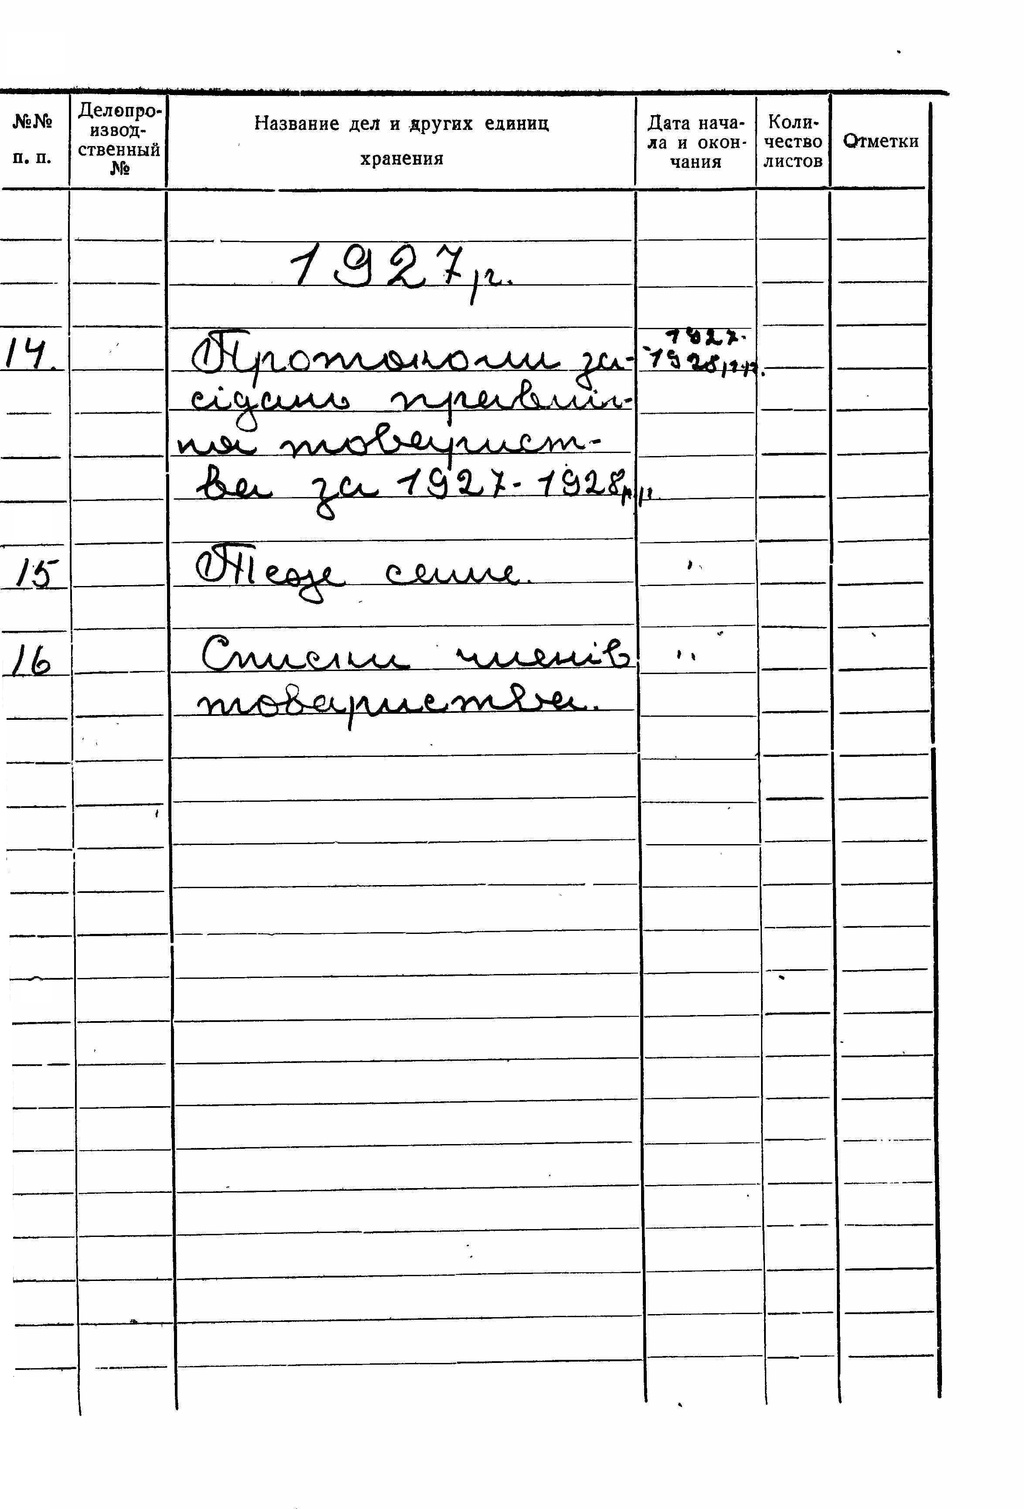 №№ п. п.
Делопро-
извод-
ственный
№
Название дел и других единиц
хранения
Дата нача-
ла и окон-
чания
Коли-
чество
листов
Отметки
1927 р.
14. Протоколи за- 1927-
сідань правлін- 1928 р.р.
ня товарист-
ва за 1927-1928 р.р.
15 Теж саме. "
16 Списки членів "
товариства.